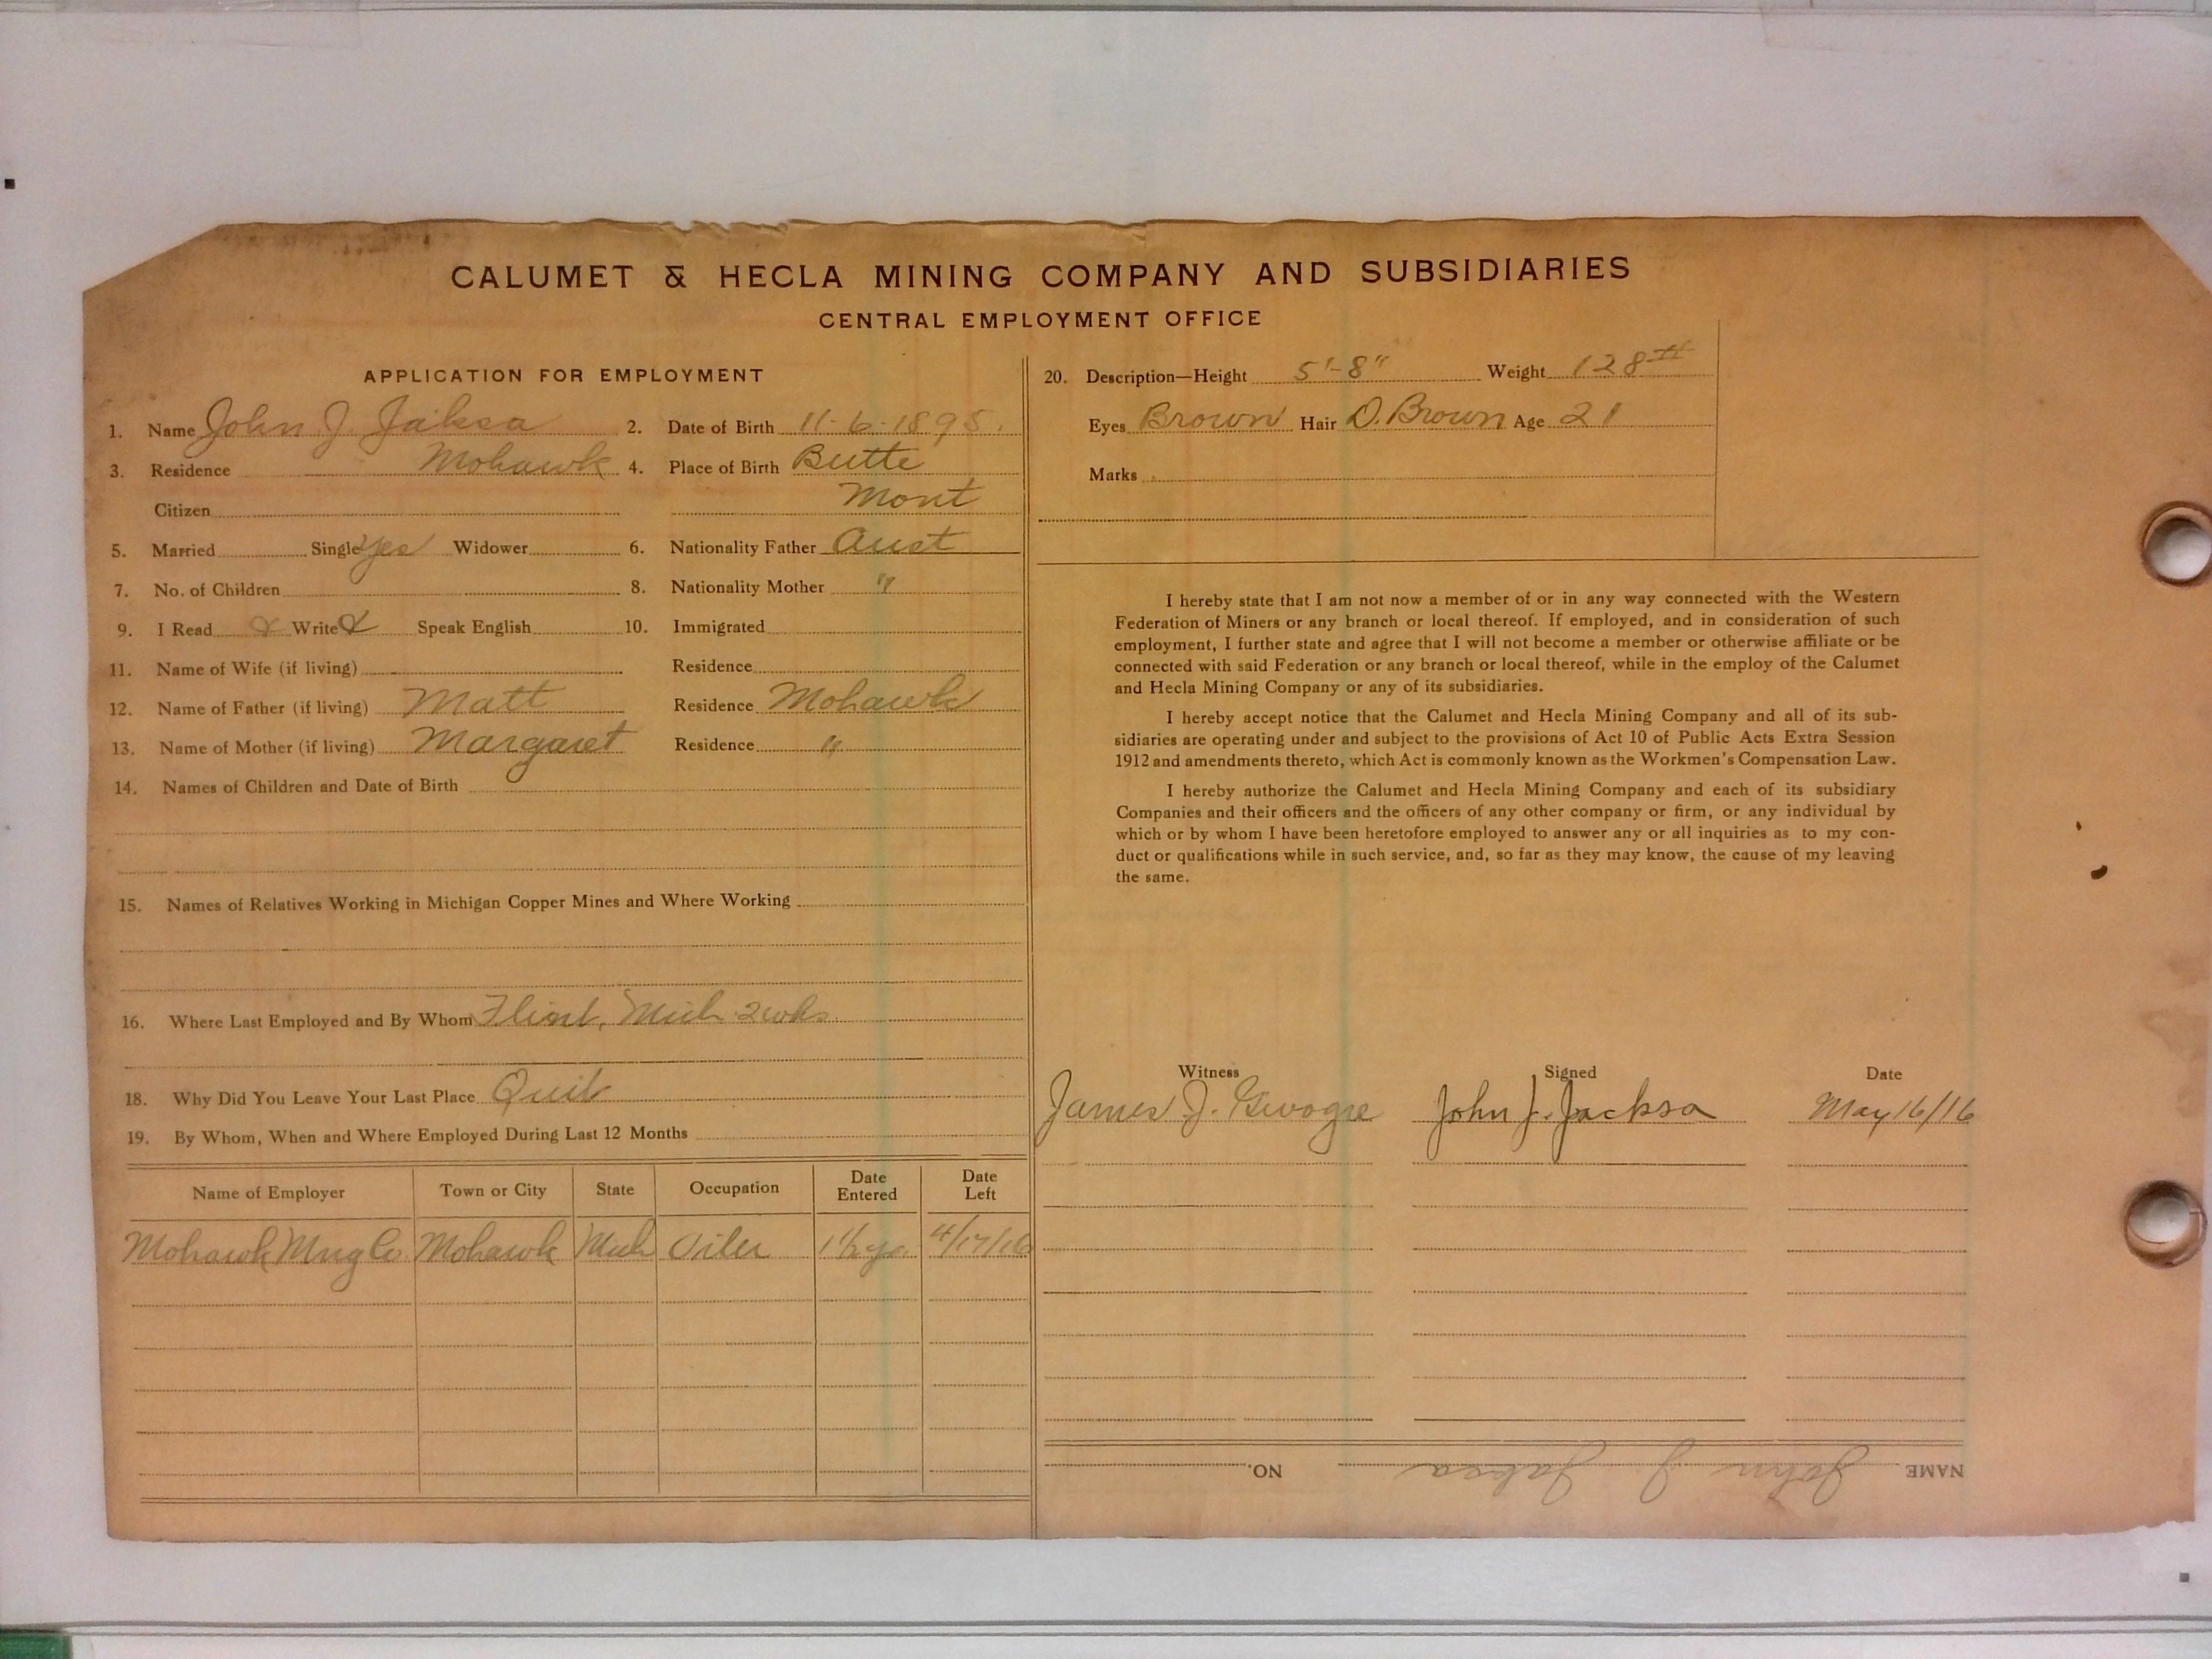 CALUMET & HECLA MINING COMPANY AND SUBSIDIARIES
CENTRAL EMPLOYMENT OFFICE
APPLICATION FOR EMPLOYMENT
1. Name John J. Jaksa 2. Date of Birth 11-6-1895.
3. Residence Mohawk 4. Place of Birth Butte
Citizen Mont
5. Married Single Yes Widower 6. Nationality Father Aust
7. No. of Children 8. Nationality Mother "
9. I Read Write Speak English 10. Immigrated
11. Name of Wife (if living) Residence
12. Name of Father (if living) Matt Residence Mohawk
13. Name of Mother (if living) Margaret Residence "
14. Names of Children and Date of Birth
15. Names of Relatives Working in Michigan Copper Mines and Where Working
16. Where Last Employed and By Whom Flint, Mich 2 wks
18. Why Did You Leave Your Last Place Quit
19. By Whom, When and Where Employed During Last 12 Months
Name of Employer Town or City State Occupation Date Entered Date Left
Mohawk Mng Co Mohawk Mich Oiler 1 1/2 yr 4/17/16
20. Description—Height 5'-8" Weight 128#
Eyes Brown Hair D. Brown Age 21
Marks
I hereby state that I am not now a member of or in any way connected with the Western
Federation of Miners or any branch or local thereof. If employed, and in consideration of such
employment, I further state and agree that I will not become a member or otherwise affiliate or be
connected with said Federation or any branch or local thereof, while in the employ of the Calumet
and Hecla Mining Company or any of its subsidiaries.
I hereby accept notice that the Calumet and Hecla Mining Company and all of its sub-
sidiaries are operating under and subject to the provisions of Act 10 of Public Acts Extra Session
1912 and amendments thereto, which Act is commonly known as the Workmen's Compensation Law.
I hereby authorize the Calumet and Hecla Mining Company and each of its subsidiary
Companies and their officers and the officers of any other company or firm, or any individual by
which or by whom I have been heretofore employed to answer any or all inquiries as to my con-
duct or qualifications while in such service, and, so far as they may know, the cause of my leaving
the same.
Witness Signed Date
James J. John J. Jacksa May 16/16
NAME John J. Jaksa NO.